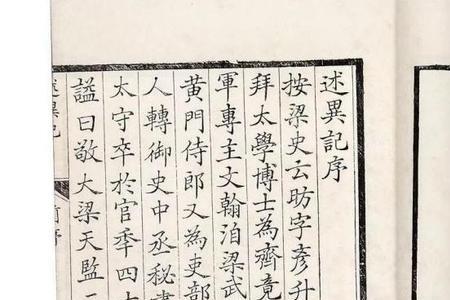 述異記序
按梁史云昉字彥升
拜太學博士為齊竟
軍專主文翰洎梁武
黄門侍郎又為吏部
人轉御史中丞秘書
太守卒於官年四十
謚曰敬大梁天監二
述異記